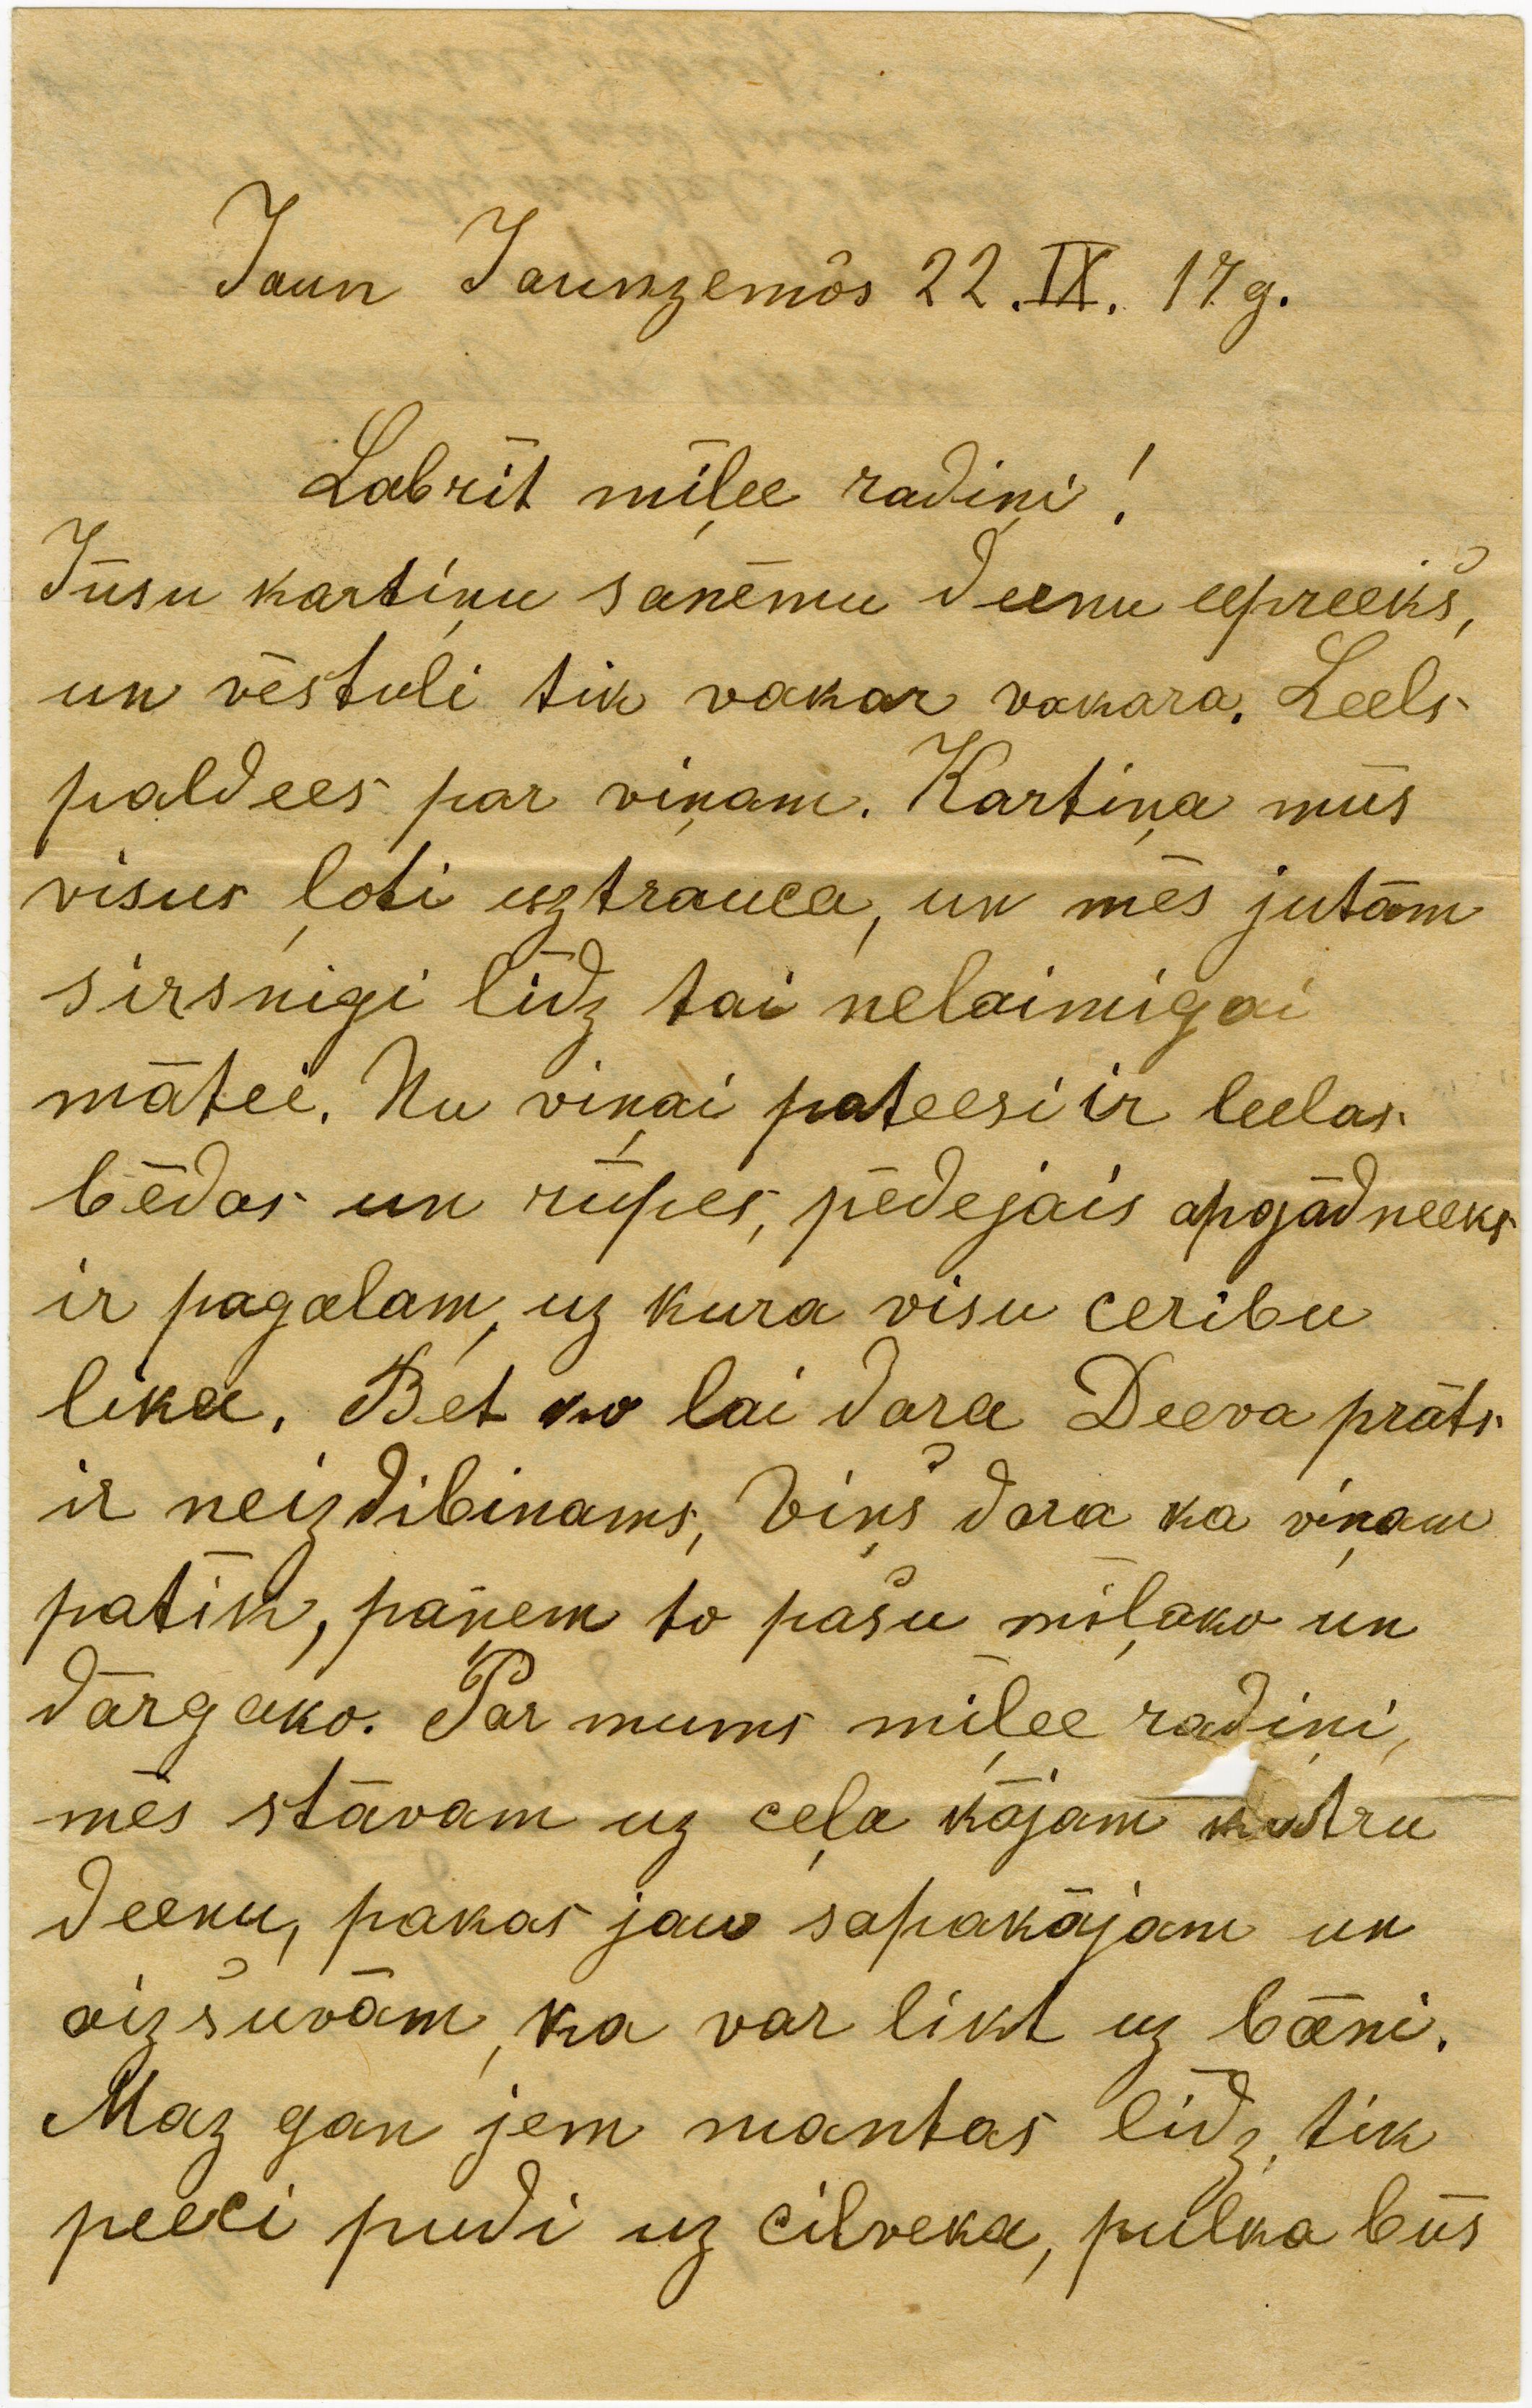 Jaun Jaunzemôs 22.IX. 17 g.
Labrīt mīļee radiņi!
Jūsu kartiņu saņēmu deenu eepreekš,
un vēstuli tik vakar vakara. Leels
paldees par viņam. Kartiņa mūs
visus ļoti uztrauca, un mēs jutām
sirsnigi līdz tai nelaimigai
mātei. Nu viņai pateesi ir leelas
bēdas un rūpes, pēdejais apgādneeks
ir pagalam, uz kura visu ceribu
lika. Bet ko lai dara Deeva prāts
ir neizdibinams, Viņš dara ka viņam
patīk, paņem to pašu mīļako un
dārgako. Par mums mīļee radiņi,
mēs stāvam uz ceļa kājam katru
deenu, pakas jau sapakājam un
aizšuvām, ka var likt uz bāni.
Maz gan jem mantas līdz, tik
peeci pudi uz cilveka, pulka būs